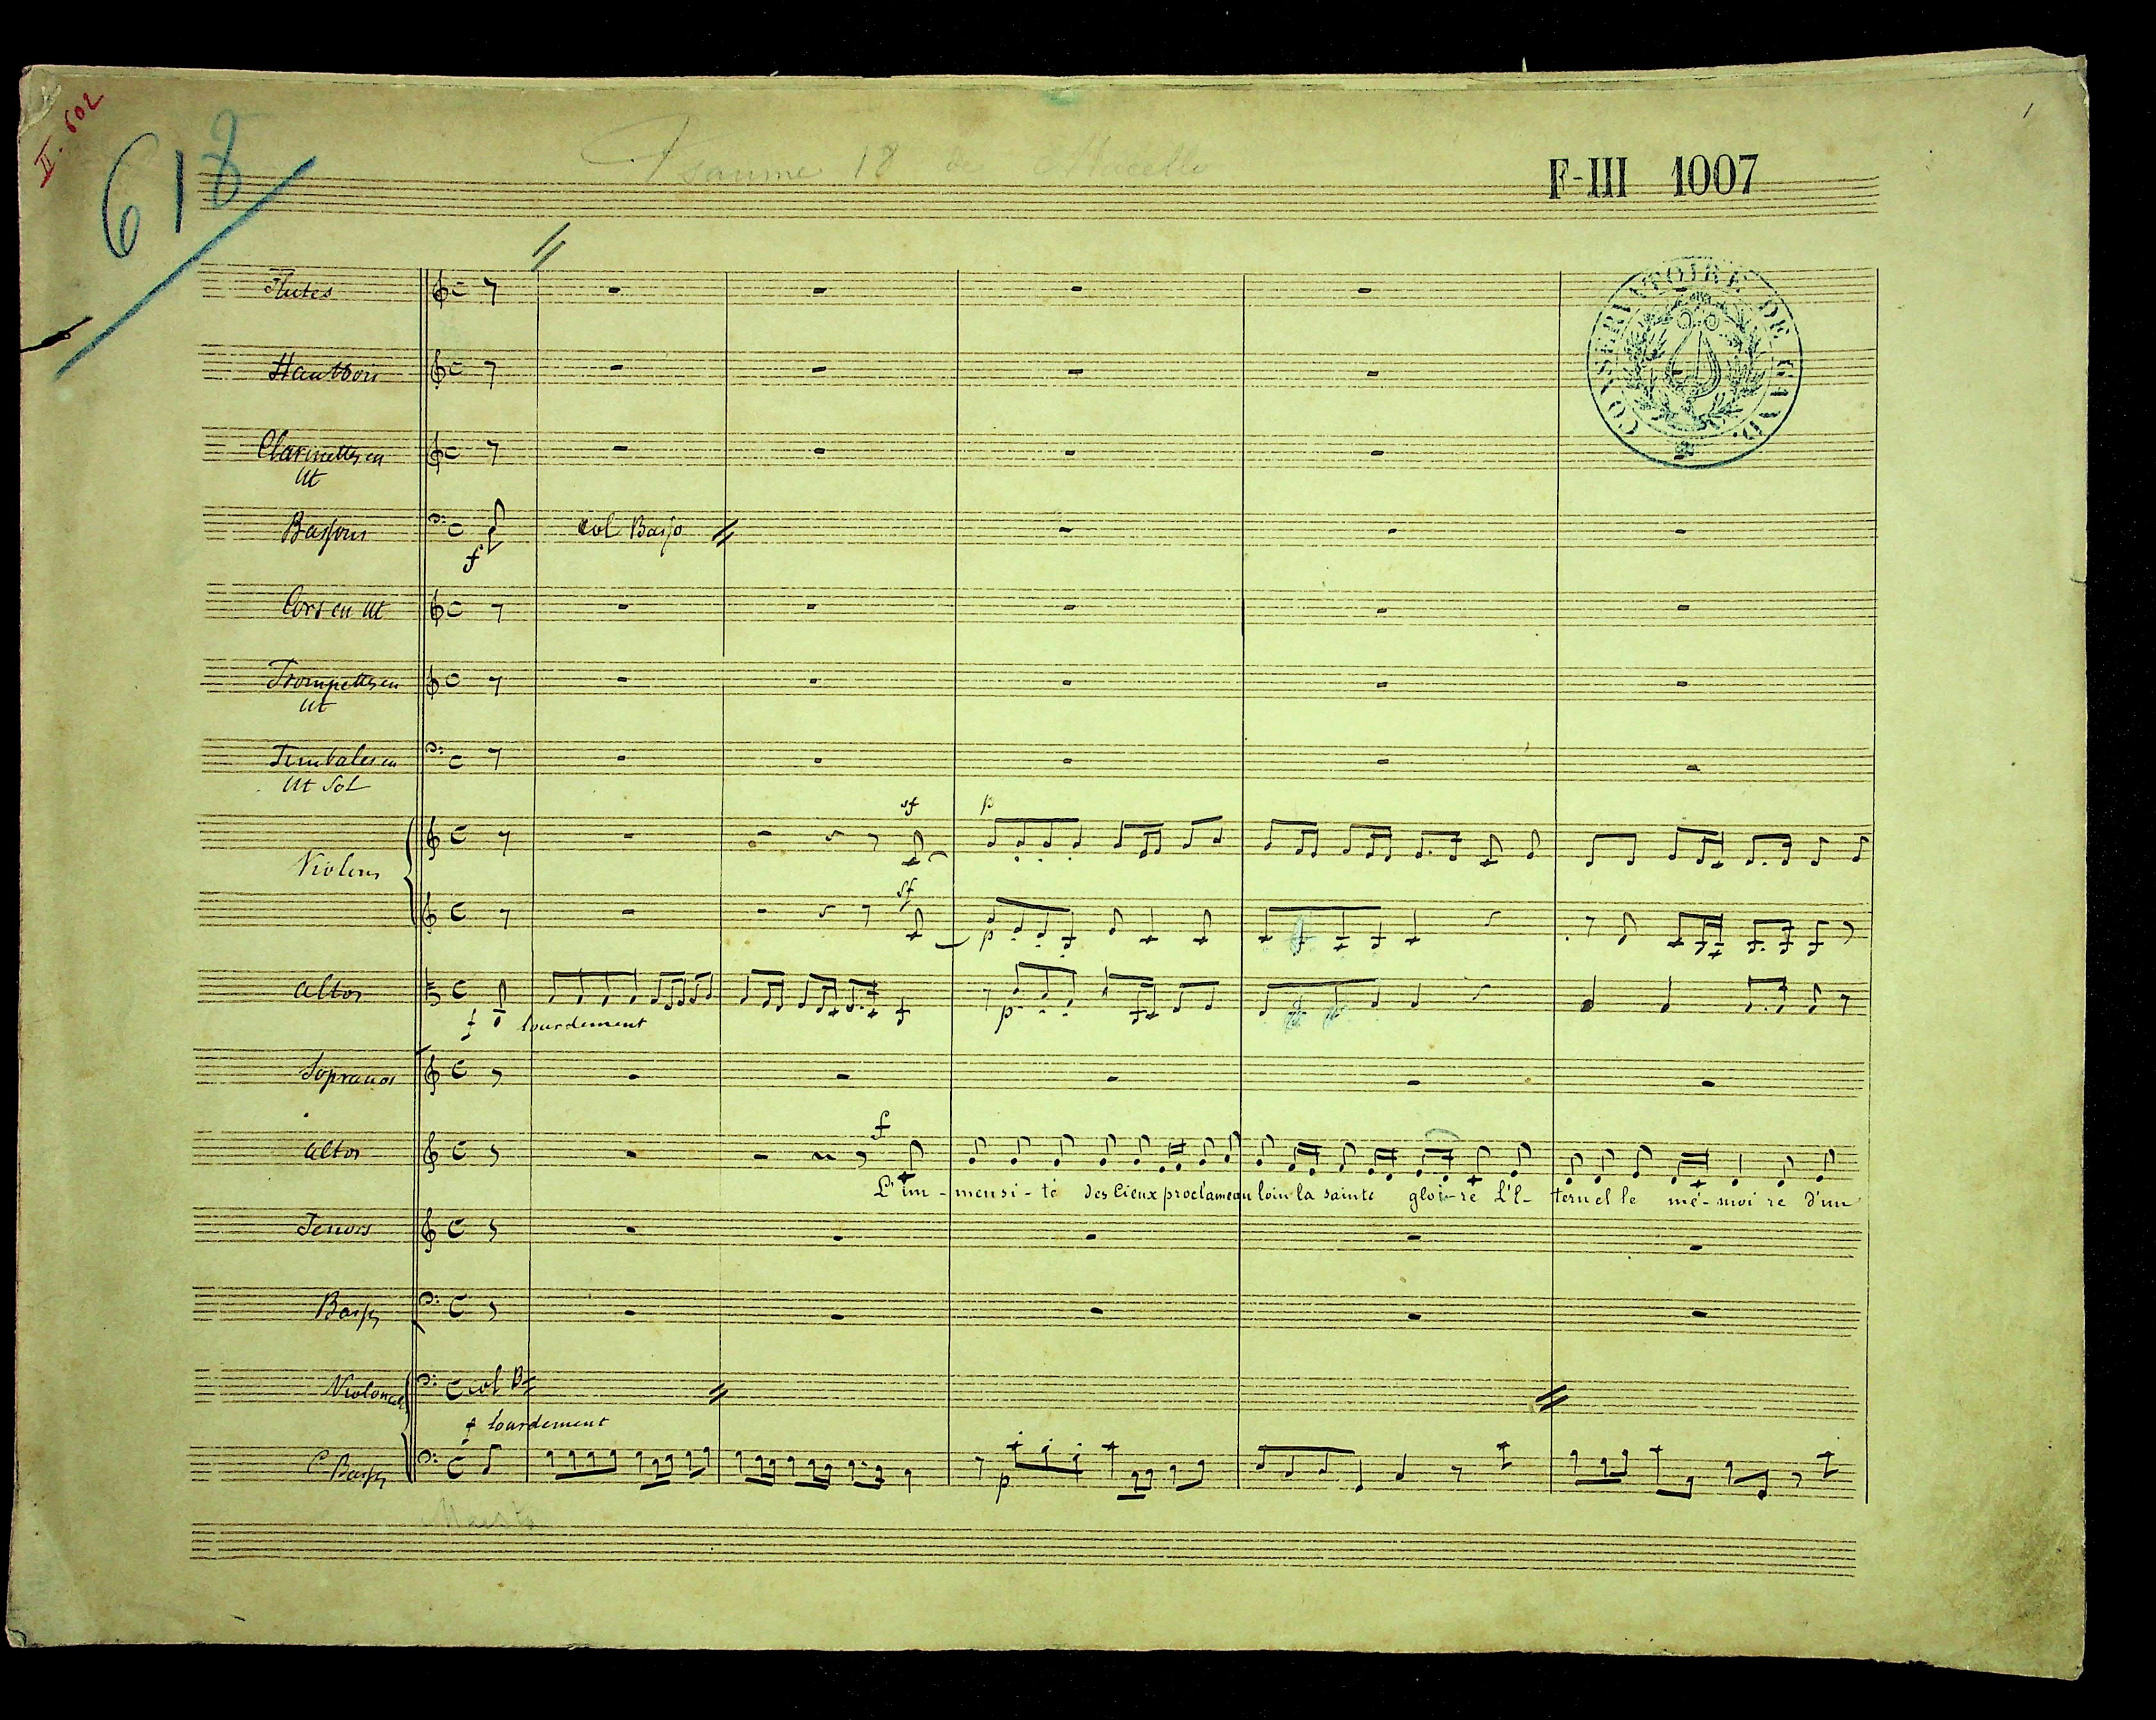 II. 602
618
1
Psaume 18 de Marcello
F-III 1007
CONSERVATOIRE DE GAND.
Flutes
Hautbois
Clarinettes en
Ut
Bassons
f
col Basso
Cors en Ut
Trompettes en
Ut
Timbales en
Ut Sol
sf p
Violons
sf p
Altos
f lourdement p
Sopranos
f
Altos
L'im - mensi - té des Cieux proclame au loin la sainte gloi - re L'E - ternel le mé - moi re d'un
Tenors
Basses
Violoncelles
col Bs
f lourdement
C. Basses
p
Maesto